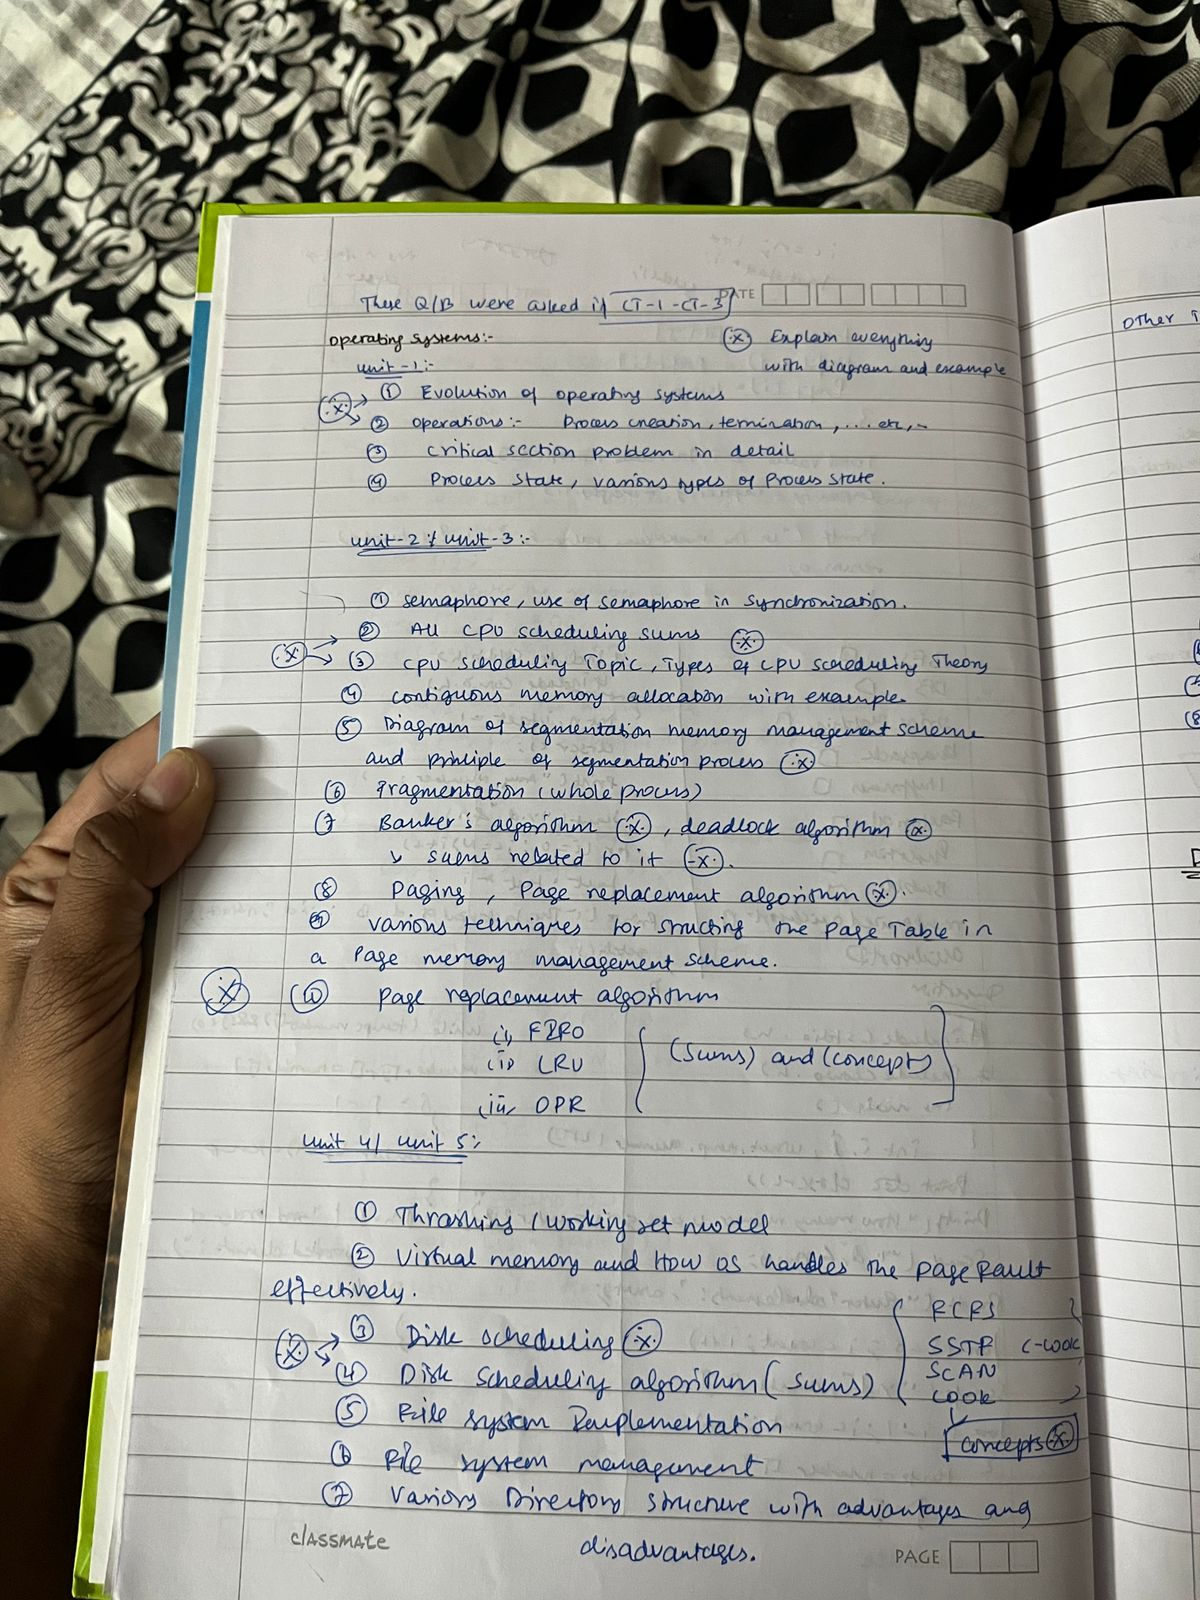 These Q/B were asked if CT-1-CT-3
DATE
operating systems:-
(x) Explain everything
with diagram and example
unit-1:-
(x) → ① Evolution of operating systems
② operations:- Process creation, termination, ... etc,-
③ critical section problem in detail
④ Process state, various types of Process state.
unit-2 & unit-3:-
① semaphore, use of semaphore in synchronization.
② All CPU scheduling sums (x)
(x) → ③ CPU scheduling Topic, Types of CPU scheduling Theory
④ contiguous memory allocation with example.
⑤ Diagram of segmentation memory management scheme
and principle of segmentation process (x)
⑥ Fragmentation (whole process)
⑦ Banker's algorithm (x), deadlock algorithm (x)
↳ sums related to it (x).
⑧ Paging, Page replacement algorithm (x).
⑨ various techniques for structing the Page Table in
a Page memory management scheme.
(x) ⑩ Page replacement algorithm
(i) FIFO
(ii) LRU
(Sums) and (concepts)
(iii) OPR
unit 4/ unit 5:
① Thrashing / working set model
② Virtual memory and How os handles the page fault
effectively.
FCFS
(x) → ③ Disk scheduling (x)
SSTF C-LOOK
④ Disk Scheduling algorithm (sums)
SCAN
LOOK
⑤ File system Implementation
concepts (x)
⑥ File system management
⑦ Various Directory structure with advantages and
disadvantages.
classmate
PAGE
Other